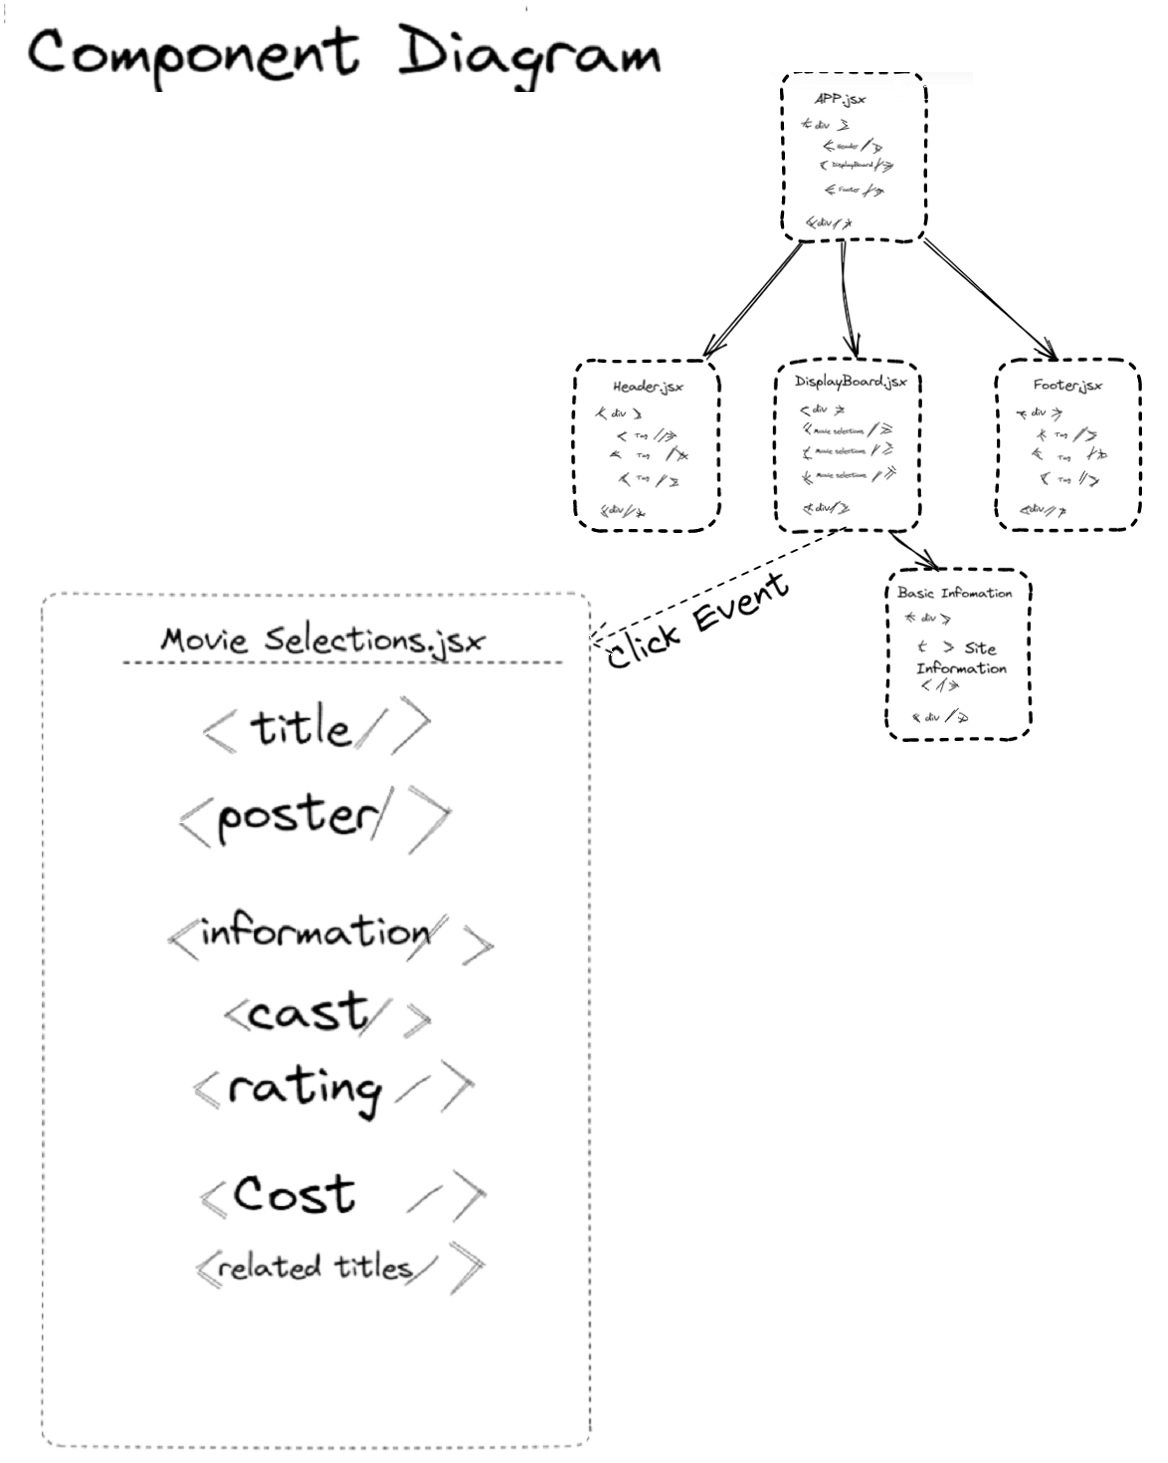 Component Diagram
APP.jsx
< div >
< Header / >
< DisplayBoard / >
< Footer / >
< div / >
Header.jsx
< div >
< Tag / >
< Tag / >
< Tag / >
< div / >
DisplayBoard.jsx
< div >
< Movie selections / >
< Movie selections / >
< Movie selections / >
< div / >
Footer.jsx
< div >
< Tag / >
< Tag / >
< Tag / >
< div / >
Click Event
Basic Infomation
< div >
< > Site
Information
< / >
< div / >
Movie Selections.jsx
< title / >
< poster / >
< information / >
< cast / >
< rating / >
< Cost / >
< related titles / >